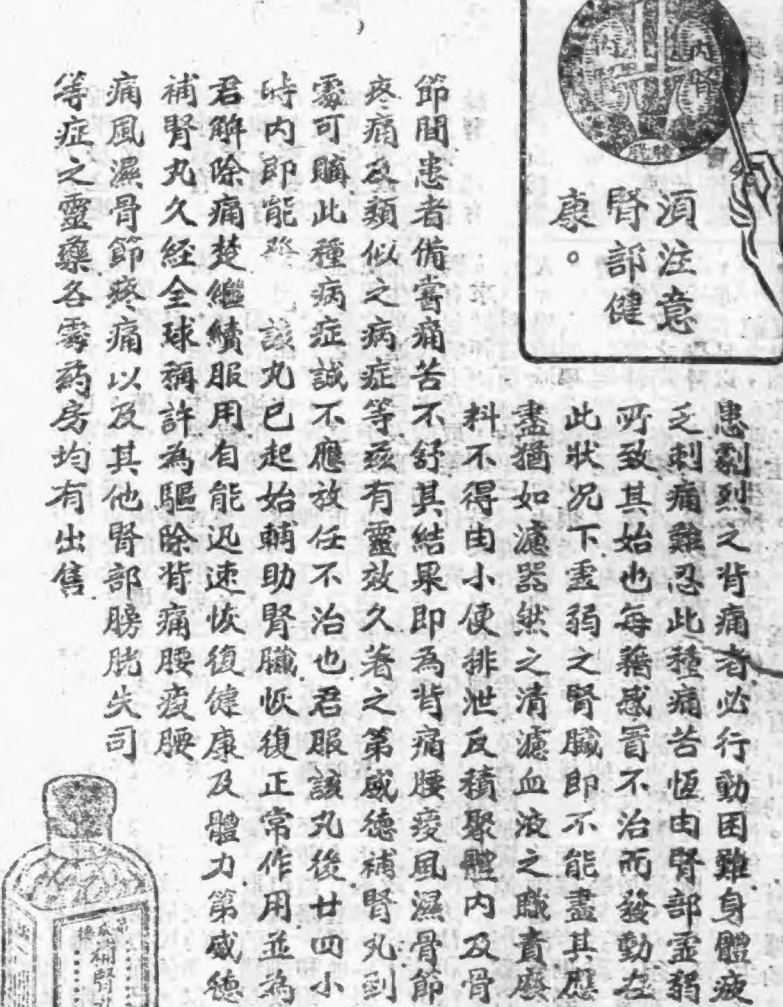 內腎
膀胱
須注意
腎部健
康。
患劇烈之背痛者必行動困難身體疲
乏刺痛難忍此種痛苦恆由腎部虛弱
所致其始也每藉感冒不治而發動在
此狀況下虛弱之腎臟即不能盡其應
盡猶如濾器然之清濾血液之職責廢
料不得由小便排泄反積聚體內及骨
節間患者備嘗痛苦不舒其結果即為背痛腰痠風濕骨節
疼痛及類似之病症等茲有靈效久著之第威德補腎丸到
處可購此種病症誠不應放任不治也君服該丸後廿四小
時內即能 該丸已起始輔助腎臟恢復正常作用並為
君解除痛楚繼續服用自能迅速恢復健康及體力第威德
補腎丸久經全球稱許為驅除背痛腰痠腰
痛風濕骨節疼痛以及其他腎部膀胱失司
等症之靈藥各處葯房均有出售
補腎